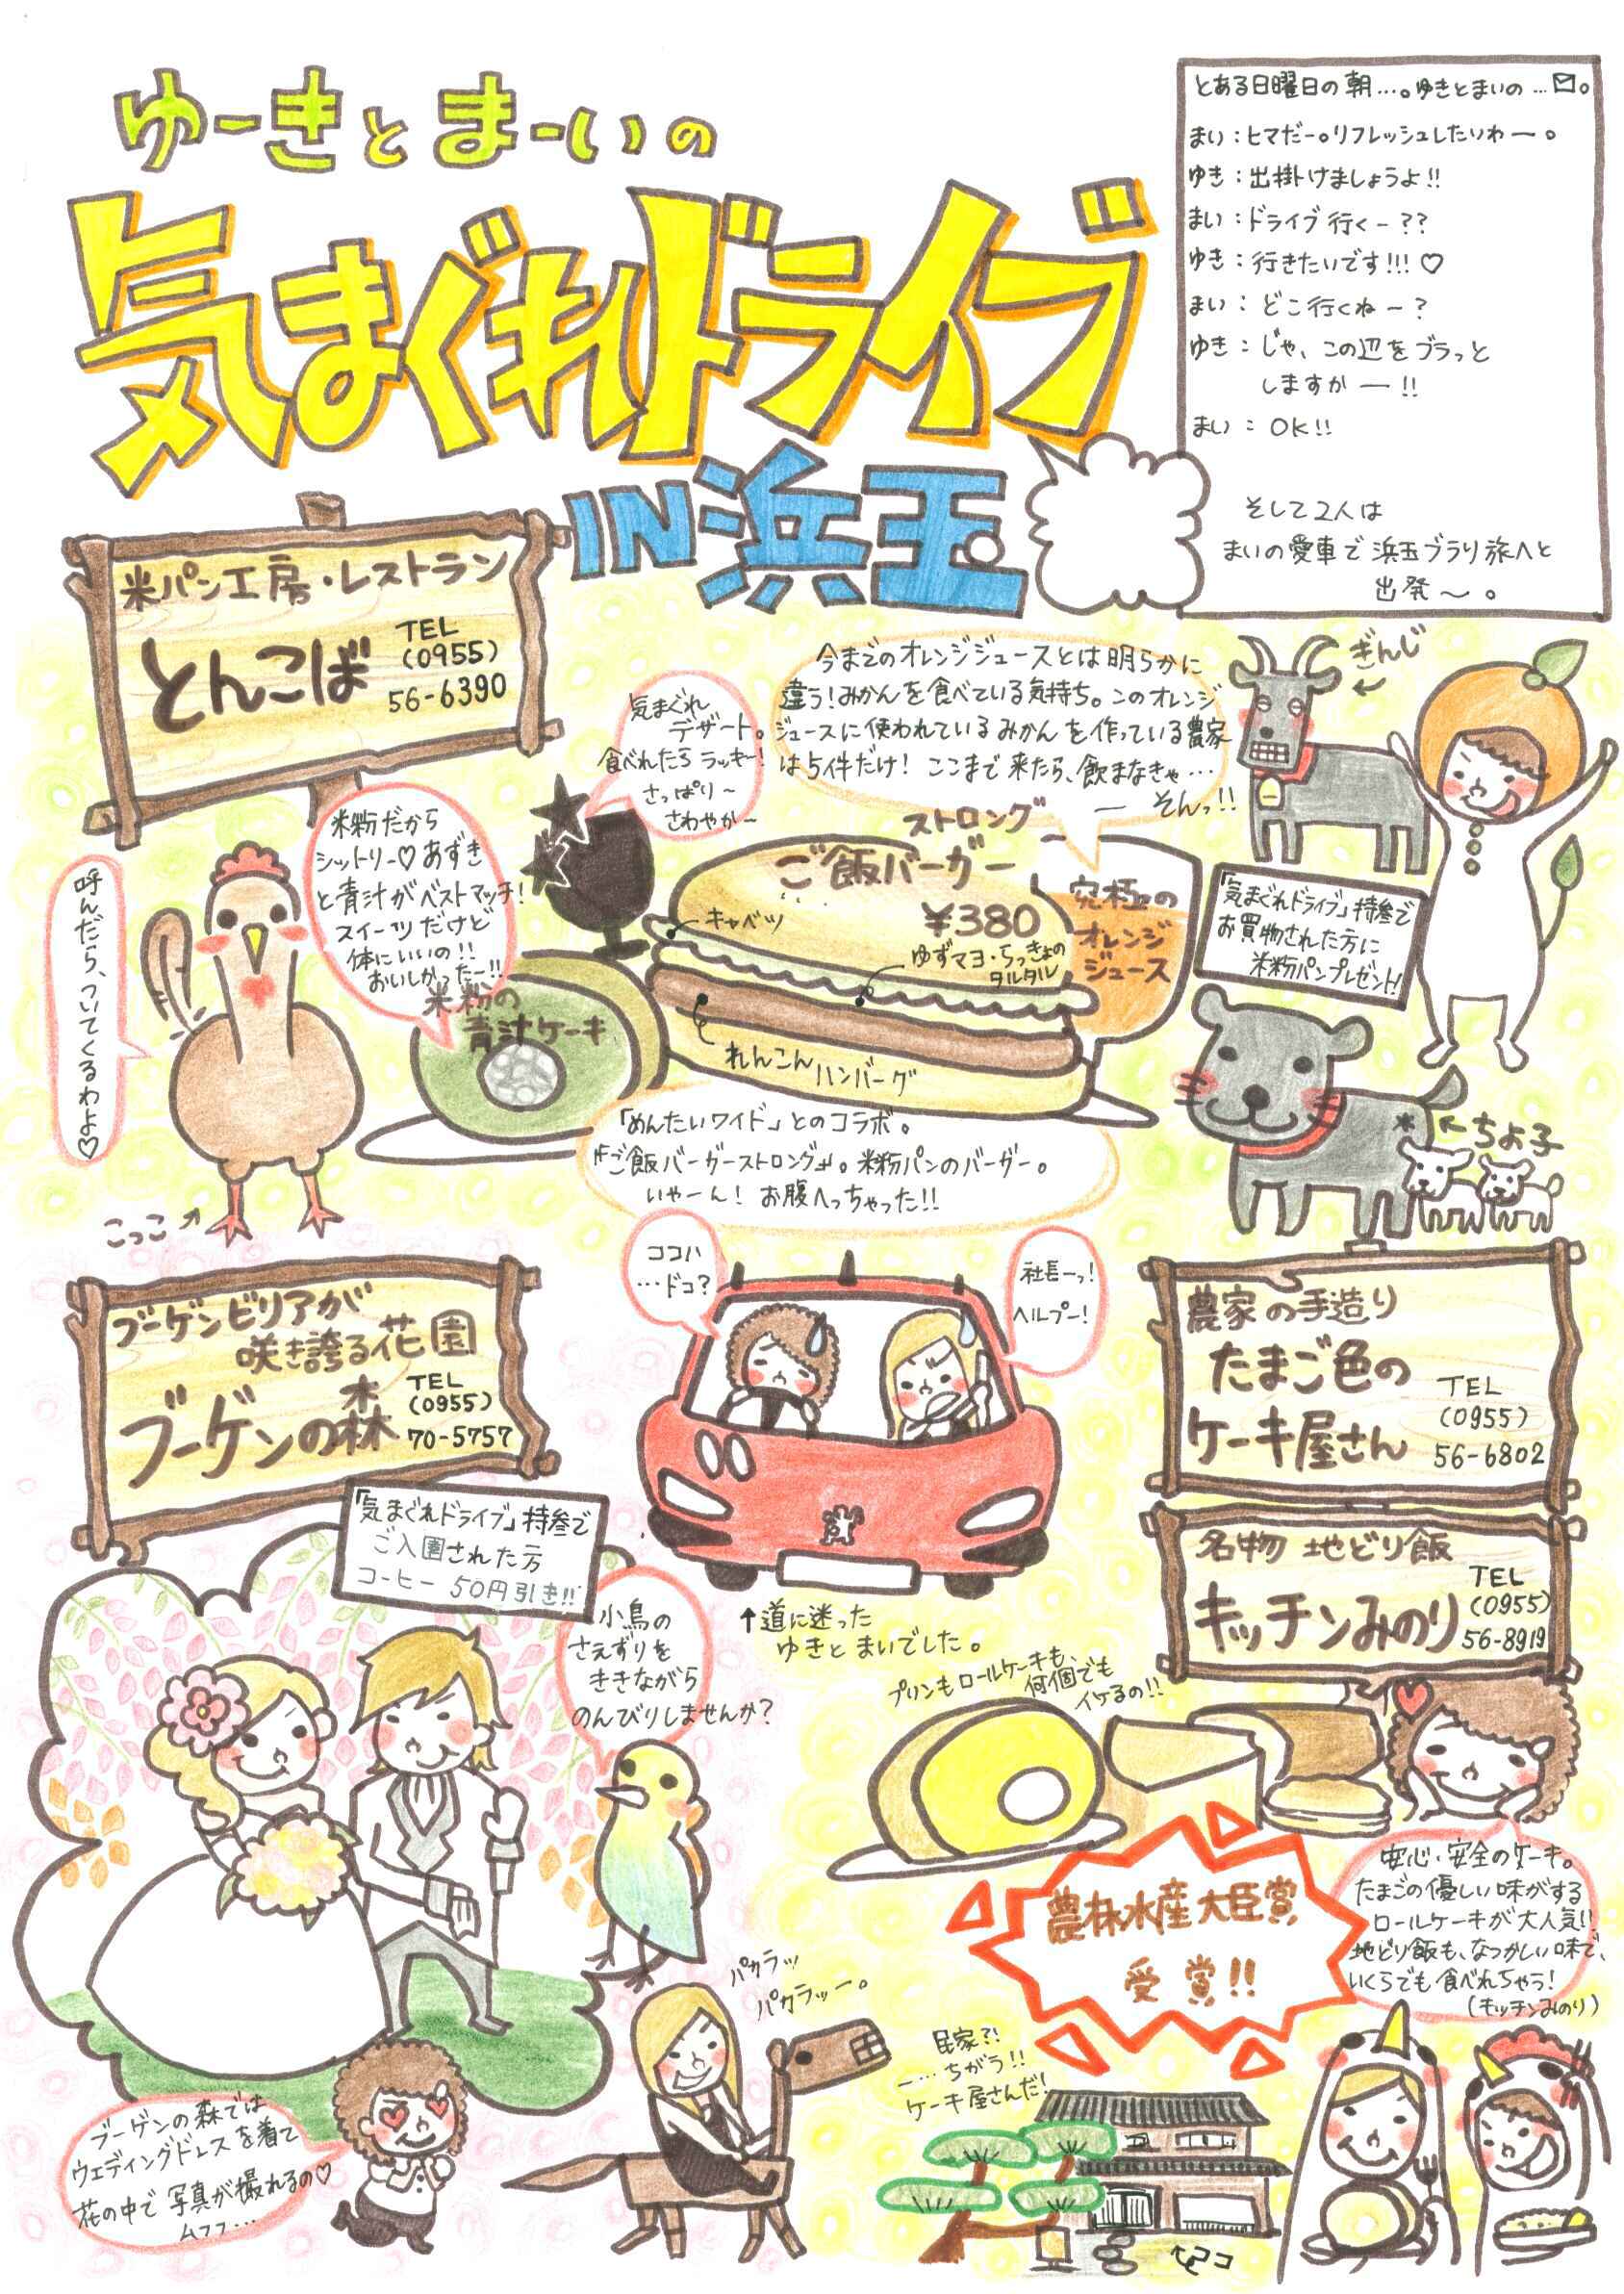 ゆーきとまーいの
気まぐれドライブ
IN浜玉
とある日曜日の朝…。ゆきとまいの…✉。
まい：ヒマだー。リフレッシュしたいわー。
ゆき：出掛けましょうよ!!
まい：ドライブ行くー??
ゆき：行きたいです!!!♡
まい：どこ行くねー?
ゆき：じゃ、この辺をブラっと
しますかー!!
まい：OK!!
そして2人は
まいの愛車で浜玉ブラり旅へと
出発〜。
米パン工房・レストラン
とんこば
TEL
(0955)
56-6390
気まぐれ
デザート。
食べれたらラッキー!
さっぱり〜
さわやか〜
今までのオレンジジュースとは明らかに
違う!みかんを食べている気持ち。このオレンジ
ジュースに使われているみかんを作っている農家
は5件だけ!ここまで来たら、飲まなきゃ…
ーそんっ!!
ぎんじ
米粉だから
シットリー♡あずき
と青汁がベストマッチ!
スイーツだけど
体にいいの!!
おいしかったー!!
呼んだら、ついてくるわよ♡
こっこ
米粉の
青汁ケーキ
ストロング
ご飯バーガー
¥380
キャベツ
ゆずマヨ・らっきょの
タルタル
れんこんハンバーグ
究極の
オレンジ
ジュース
「気まぐれドライブ」持参で
お買物された方に
米粉パンプレゼント!
ちよ子
「めんたいワイド」とのコラボ。
『ご飯バーガーストロング』。米粉パンのバーガー。
いやーん!お腹へっちゃった!!
ブーゲンビリアが
咲き誇る花園
ブーゲンの森
TEL
(0955)
70-5757
「気まぐれドライブ」持参で
ご入園された方
コーヒー50円引き!!
ココハ
…ドコ?
社長ーっ!
ヘルプー!
↑道に迷った
ゆきとまいでした。
農家の手造り
たまご色の
ケーキ屋さん
TEL
(0955)
56-6802
名物 地どり飯
キッチンみのり
TEL
(0955)
56-8919
小鳥の
さえずりを
ききながら
のんびりしませんか?
プリンもロールケーキも、
何個でも
イケるの!!
農林水産大臣賞
受賞!!
安心・安全のケーキ。
たまごの優しい味がする
ロールケーキが大人気!!
地どり飯も、なつかしい味で、
いくらでも食べれちゃう!
(キッチンみのり)
パカラッ
パカラッー。
民家?!
ー…ちがう!!
ケーキ屋さんだ!
ココ
ブーゲンの森では
ウェディングドレスを着て
花の中で写真が撮れるの♡
ムフフ…